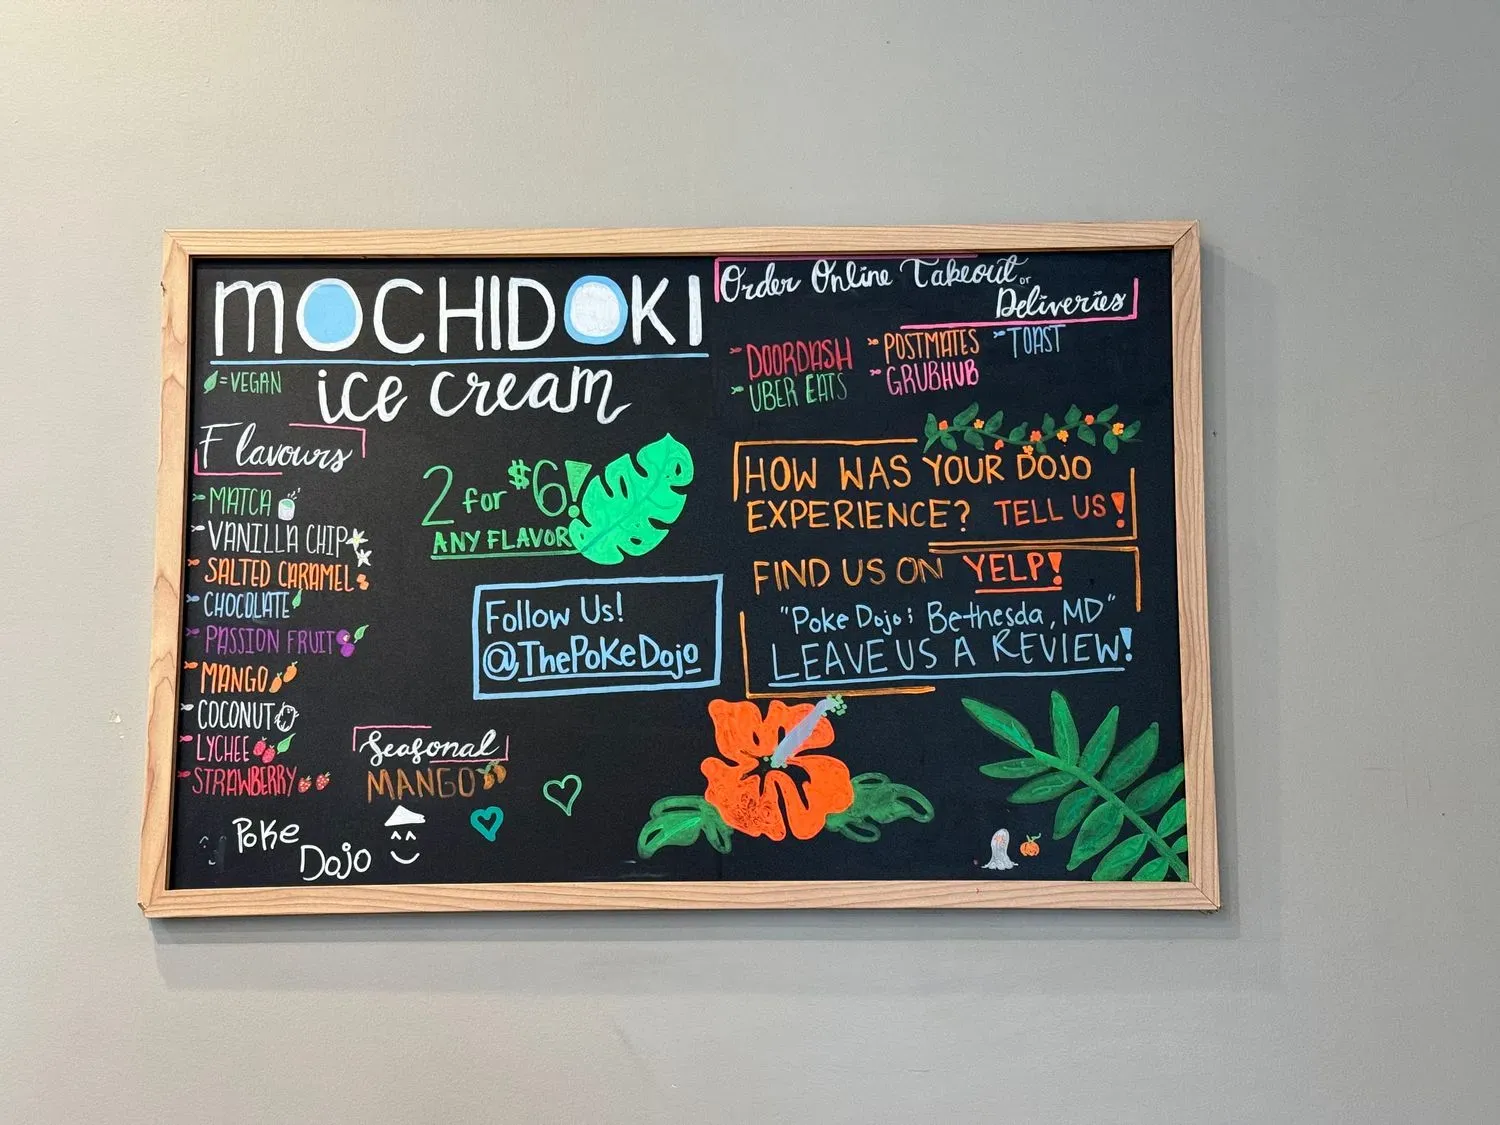 MOCHIDOKI
ice cream
=VEGAN
Flavours
MATCHA
VANILLA CHIP
SALTED CARAMEL
CHOCOLATE
PASSION FRUIT
MANGO
COCONUT
LYCHEE
STRAWBERRY
2 for $6!
ANY FLAVOR
Follow Us!
@ThePokeDojo
Seasonal
MANGO
Poke
Dojo
Order Online Takeout or
Deliveries
DOORDASH
UBER EATS
POSTMATES
GRUBHUB
TOAST
HOW WAS YOUR DOJO
EXPERIENCE? TELL US!
FIND US ON YELP!
"Poke Dojo; Bethesda, MD"
LEAVE US A REVIEW!